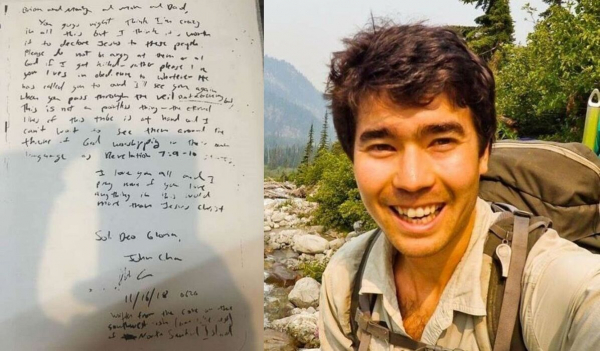 Brian and and mom and Dad,
You guys might think I'm crazy
in all this but I think it's worth
it to declare Jesus to these people.
Please do not be angry at them or at
God if I get killed - rather please live
your lives in obedience to whatever He
has called you to and I'll see you again
when you pass through the veil
This is not a pointless thing - the eternal
lives of this tribe is at hand and I
can't wait to see them around the
throne of God worshipping in their own
language as Revelation 7:9-10
I love you all and I
pray none of you love
anything in this world
more than Jesus Christ
Soli Deo Gloria,
John Chau
11/16/18
written from the cove on the
southwest
of North Sentinel Island